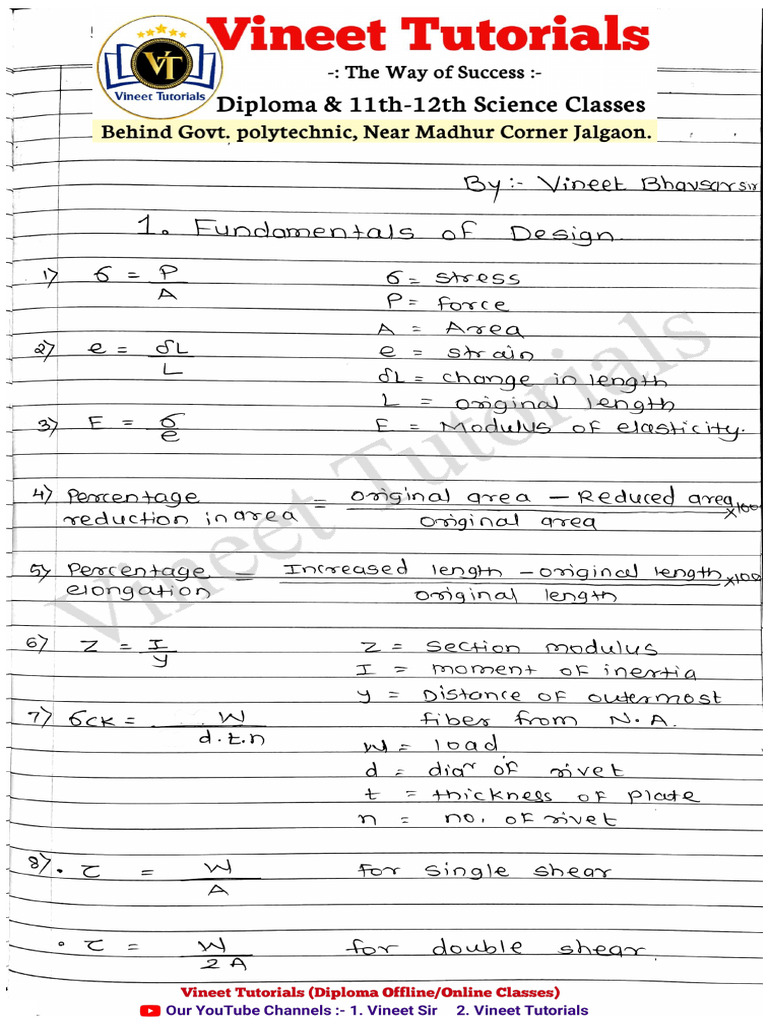 Vineet Tutorials
-: The Way of Success :-
Diploma & 11th-12th Science Classes
Behind Govt. polytechnic, Near Madhur Corner Jalgaon.
VT
Vineet Tutorials
By:- Vineet Bhavsar Sir
1. Fundamentals of Design
1) σ = P/A σ = stress
P = force
A = Area
2) e = δL/L e = strain
δL = change in length
L = original length
3) E = σ/e E = Modulus of elasticity.
4) Percentage reduction in area = original area - Reduced area / original area ×100
5) Percentage elongation = Increased length - original length / original length ×100
6) Z = I/y Z = section modulus
I = moment of inertia
y = Distance of outermost
fiber from N.A.
7) σck = W/d.t.n
W = load
d = diaʳ of rivet
t = thickness of plate
n = no. of rivet
8) • τ = W/A for single shear
• τ = W/2A for double shear.
Vineet Tutorials
Vineet Tutorials (Diploma Offline/Online Classes)
Our YouTube Channels :- 1. Vineet Sir 2. Vineet Tutorials